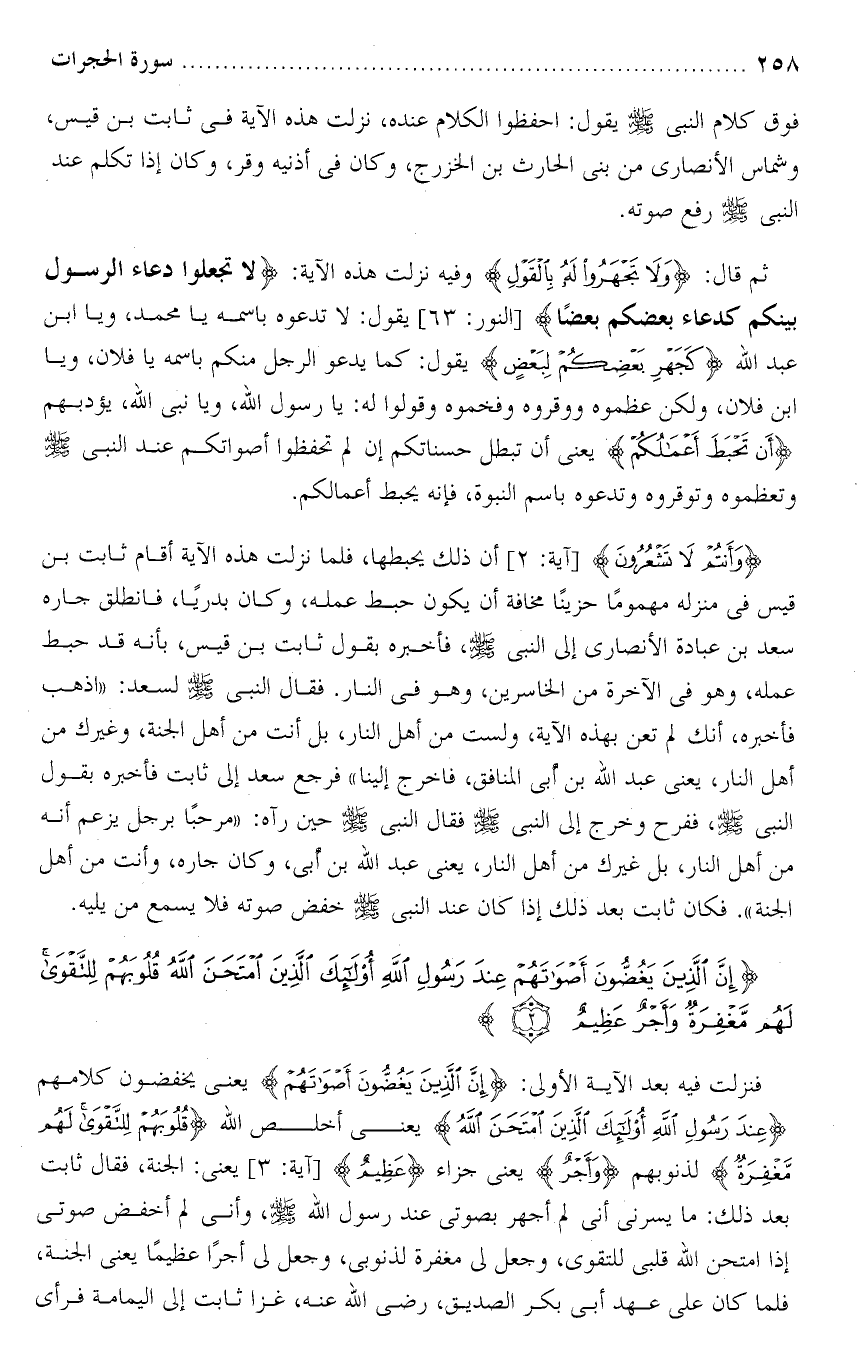 ٢٥٨ ........................................................................ سورة الحجرات
فوق كلام النبى ﷺ يقول: احفظوا الكلام عنده، نزلت هذه الآية فى ثابت بن قيس،
وشماس الأنصارى من بنى الحارث بن الخزرج، وكان فى أذنيه وقر، وكان إذا تكلم عند
النبى ﷺ رفع صوته.
ثم قال: ﴿وَلَا تَجْهَرُوا۟ لَهُۥ بِٱلْقَوْلِ﴾ وفيه نزلت هذه الآية: ﴿لا تجعلوا دعاء الرسول
بينكم كدعاء بعضكم بعضًا﴾ [النور: ٦٣] يقول: لا تدعوه باسمه يا محمد، ويا ابن
عبد الله ﴿كَجَهْرِ بَعْضِكُمْ لِبَعْضٍ﴾ يقول: كما يدعو الرجل منكم باسمه يا فلان، ويا
ابن فلان، ولكن عظموه ووقروه وفخموه وقولوا له: يا رسول الله، ويا نبى الله، يؤدبهم
﴿أَن تَحْبَطَ أَعْمَٰلُكُمْ﴾ يعنى أن تبطل حسناتكم إن لم تحفظوا أصواتكم عند النبى ﷺ
وتعظموه وتوقروه وتدعوه باسم النبوة، فإنه يحبط أعمالكم.
﴿وَأَنتُمْ لَا تَشْعُرُونَ﴾ [آية: ٢] أن ذلك يحبطها، فلما نزلت هذه الآية أقام ثابت بن
قيس فى منزله مهمومًا حزينًا مخافة أن يكون حبط عمله، وكان بدريًا، فانطلق جاره
سعد بن عبادة الأنصارى إلى النبى ﷺ، فأخبره بقول ثابت بن قيس، بأنه قد حبط
عمله، وهو فى الآخرة من الخاسرين، وهو فى النار. فقال النبى ﷺ لسعد: «اذهب
فأخبره، أنك لم تعن بهذه الآية، ولست من أهل النار، بل أنت من أهل الجنة، وغيرك من
أهل النار، يعنى عبد الله بن أبى المنافق، فاخرج إلينا» فرجع سعد إلى ثابت فأخبره بقول
النبى ﷺ، ففرح وخرج إلى النبى ﷺ فقال النبى ﷺ حين رآه: «مرحبًا برجل يزعم أنه
من أهل النار، بل غيرك من أهل النار، يعنى عبد الله بن أبى، وكان جاره، وأنت من أهل
الجنة». فكان ثابت بعد ذلك إذا كان عند النبى ﷺ خفض صوته فلا يسمع من يليه.
﴿إِنَّ ٱلَّذِينَ يَغُضُّونَ أَصْوَٰتَهُمْ عِندَ رَسُولِ ٱللَّهِ أُو۟لَٰٓئِكَ ٱلَّذِينَ ٱمْتَحَنَ ٱللَّهُ قُلُوبَهُمْ لِلتَّقْوَىٰ ۚ
لَهُم مَّغْفِرَةٌ وَأَجْرٌ عَظِيمٌ ٣﴾
فنزلت فيه بعد الآية الأولى: ﴿إِنَّ ٱلَّذِينَ يَغُضُّونَ أَصْوَٰتَهُمْ﴾ يعنى يخفضون كلامهم
﴿عِندَ رَسُولِ ٱللَّهِ أُو۟لَٰٓئِكَ ٱلَّذِينَ ٱمْتَحَنَ ٱللَّهُ﴾ يعنى أخلص الله ﴿قُلُوبَهُمْ لِلتَّقْوَىٰ ۚ لَهُم
مَّغْفِرَةٌ﴾ لذنوبهم ﴿وَأَجْرٌ﴾ يعنى جزاء ﴿عَظِيمٌ﴾ [آية: ٣] يعنى: الجنة، فقال ثابت
بعد ذلك: ما يسرنى أنى لم أجهر بصوتى عند رسول الله ﷺ، وأنى لم أخفض صوتى
إذا امتحن الله قلبى للتقوى، وجعل لى مغفرة لذنوبى، وجعل لى أجرًا عظيمًا يعنى الجنة،
فلما كان على عهد أبى بكر الصديق، رضى الله عنه، غزا ثابت إلى اليمامة فرأى